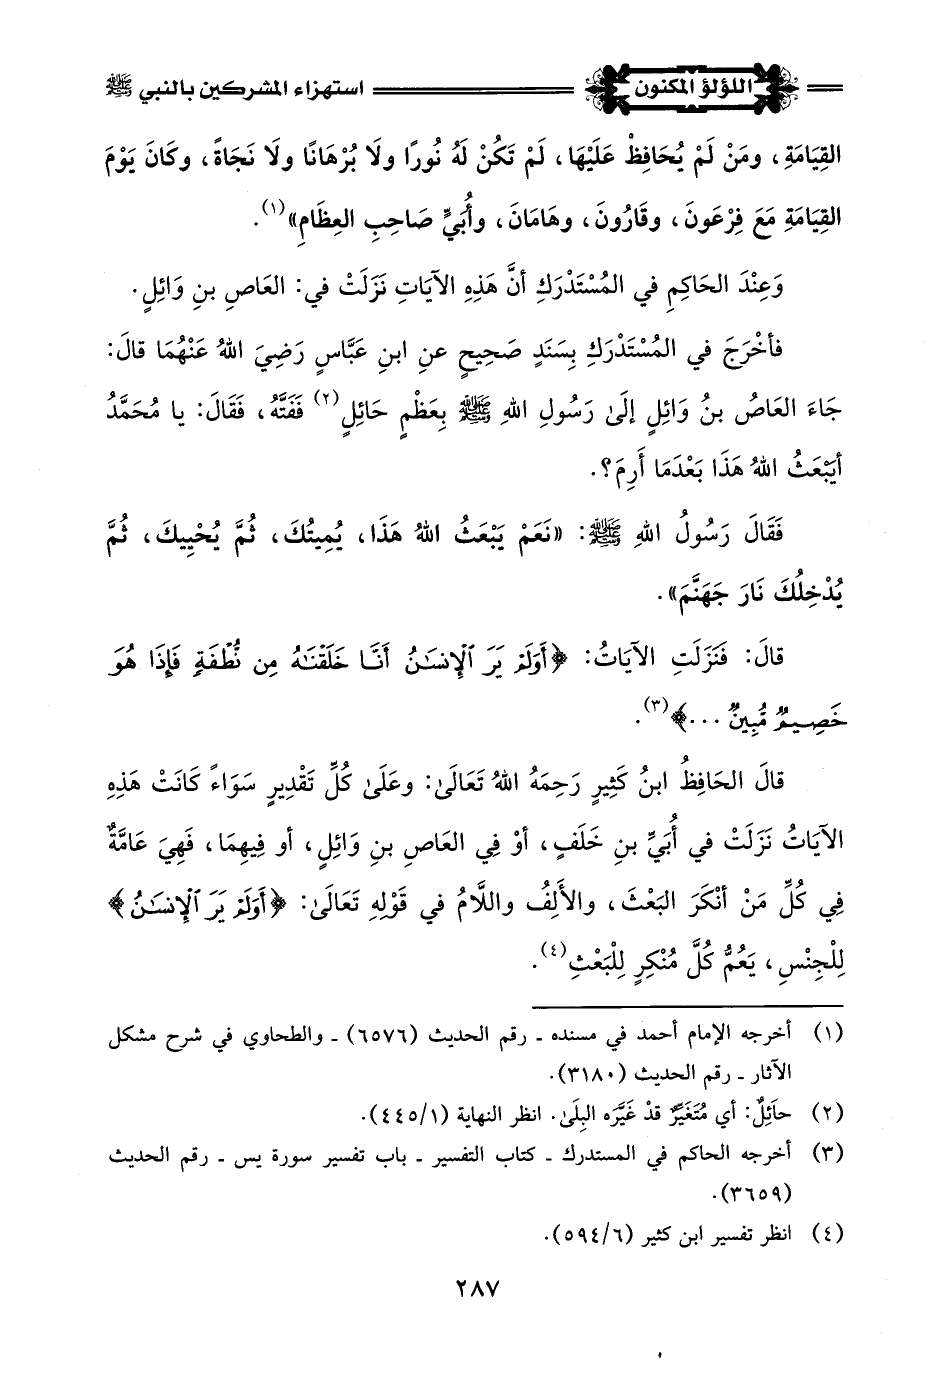 اللؤلؤ المكنون استهزاء المشركين بالنبي ﷺ
القِيَامَةِ، ومَنْ لَمْ يُحَافِظْ عَلَيْهَا، لَمْ تَكُنْ لَهُ نُورًا ولَا بُرْهَانًا ولَا نَجَاةً، وكَانَ يَوْمَ
القِيَامَةِ مَعَ فِرْعَونَ، وقَارُونَ، وهَامَانَ، وأُبَيِّ صَاحِبِ العِظَامِ»(١).
وَعِنْدَ الحَاكِمِ في المُسْتَدْرَكِ أنَّ هَذِهِ الآيَاتِ نَزَلَتْ في: العَاصِ بنِ وَائِلٍ.
فأخْرَجَ في المُسْتَدْرَكِ بِسَنَدٍ صَحِيحٍ عنِ ابنِ عَبَّاسٍ رَضِيَ اللهُ عَنْهُمَا قالَ:
جَاءَ العَاصُ بنُ وَائِلٍ إلَى رَسُولِ اللهِ ﷺ بِعَظْمٍ حَائِلٍ(٢) فَفَتَّهُ، فَقَالَ: يا مُحَمَّدُ
أيَبْعَثُ اللهُ هَذَا بَعْدَمَا أَرِمَ؟.
فَقَالَ رَسُولُ اللهِ ﷺ: «نَعَمْ يَبْعَثُ اللهُ هَذَا، يُمِيتُكَ، ثُمَّ يُحْيِيكَ، ثُمَّ
يُدْخِلُكَ نَارَ جَهَنَّمَ».
قالَ: فَنَزَلَتِ الآيَاتُ: ﴿أَوَلَمْ يَرَ ٱلْإِنسَٰنُ أَنَّا خَلَقْنَٰهُ مِن نُّطْفَةٍ فَإِذَا هُوَ
خَصِيمٌ مُّبِينٌ ...﴾(٣).
قالَ الحَافِظُ ابنُ كَثِيرٍ رَحِمَهُ اللهُ تَعَالَى: وعَلَى كُلِّ تَقْدِيرٍ سَوَاءً كَانَتْ هَذِهِ
الآيَاتُ نَزَلَتْ في أُبَيِّ بنِ خَلَفٍ، أوْ فِي العَاصِ بنِ وَائِلٍ، أو فِيهِمَا، فَهِيَ عَامَّةٌ
فِي كُلِّ مَنْ أنْكَرَ البَعْثَ، والأَلِفُ واللَّامُ في قَوْلِهِ تَعَالَى: ﴿أَوَلَمْ يَرَ ٱلْإِنسَٰنُ﴾
لِلْجِنْسِ، يَعُمُّ كُلَّ مُنْكِرٍ لِلْبَعْثِ(٤).
(١) أخرجه الإمام أحمد في مسنده ـ رقم الحديث (٦٥٧٦) ـ والطحاوي في شرح مشكل
الآثار ـ رقم الحديث (٣١٨٠).
(٢) حَائِلٌ: أي مُتَغَيِّرٌ قدْ غَيَّرَه البِلَى. انظر النهاية (٤٤٥/١).
(٣) أخرجه الحاكم في المستدرك ـ كتاب التفسير ـ باب تفسير سورة يس ـ رقم الحديث
(٣٦٥٩).
(٤) انظر تفسير ابن كثير (٥٩٤/٦).
٢٨٧